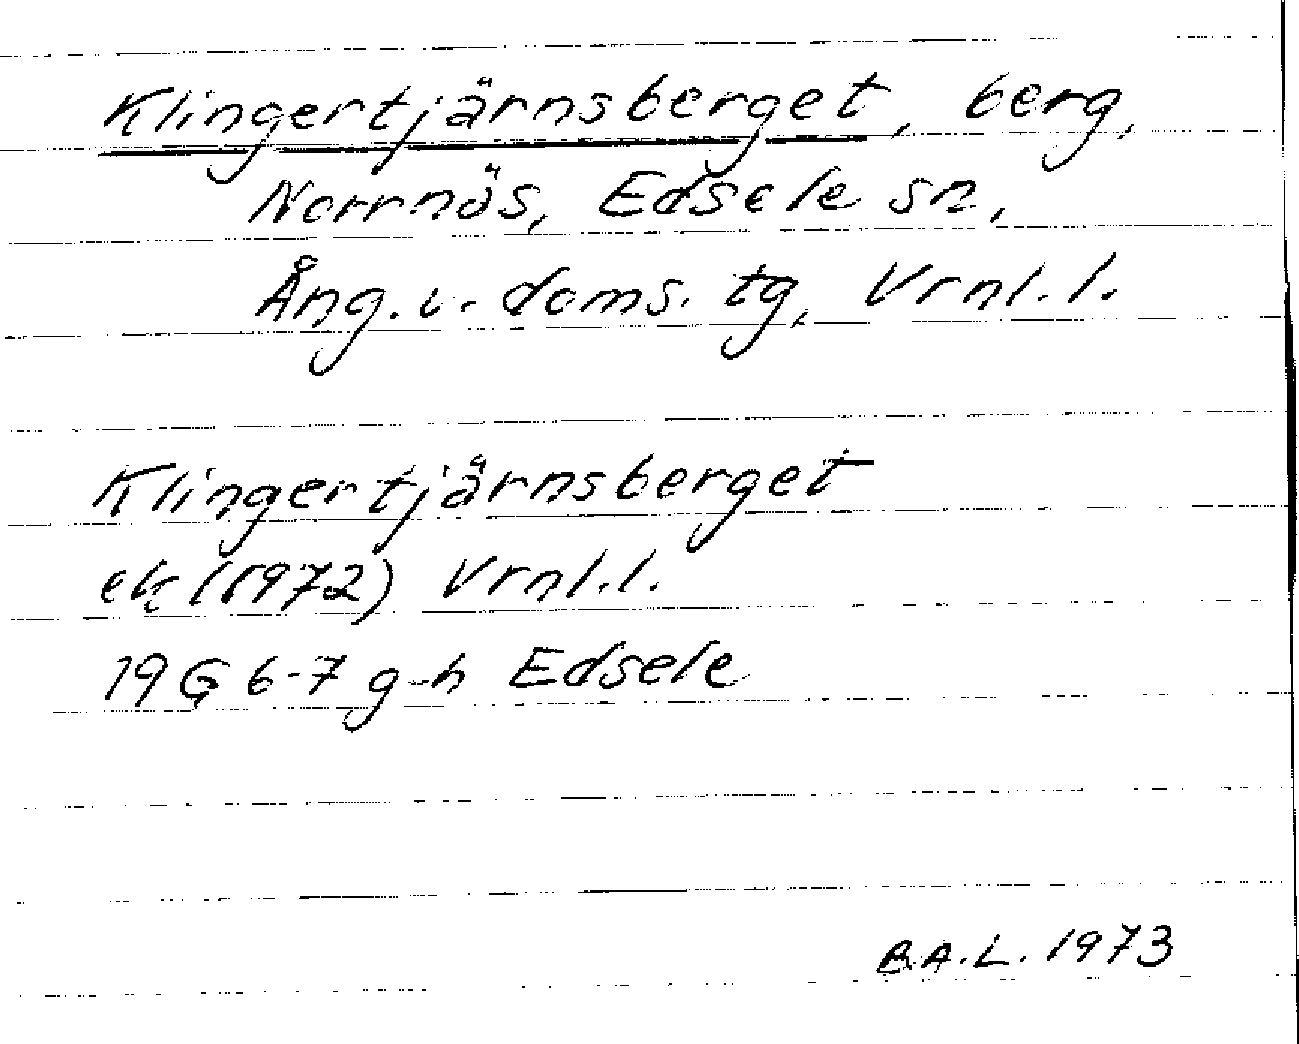 Klingertjärnsberget, berg,
Norrnäs, Edsele sn,
Ång. v. doms. tg, Vrnl. l.
Klingertjärnsberget
ek (1972) Vrnl. l.
19 G 6-7 g-h Edsele
B.A.L. 1973